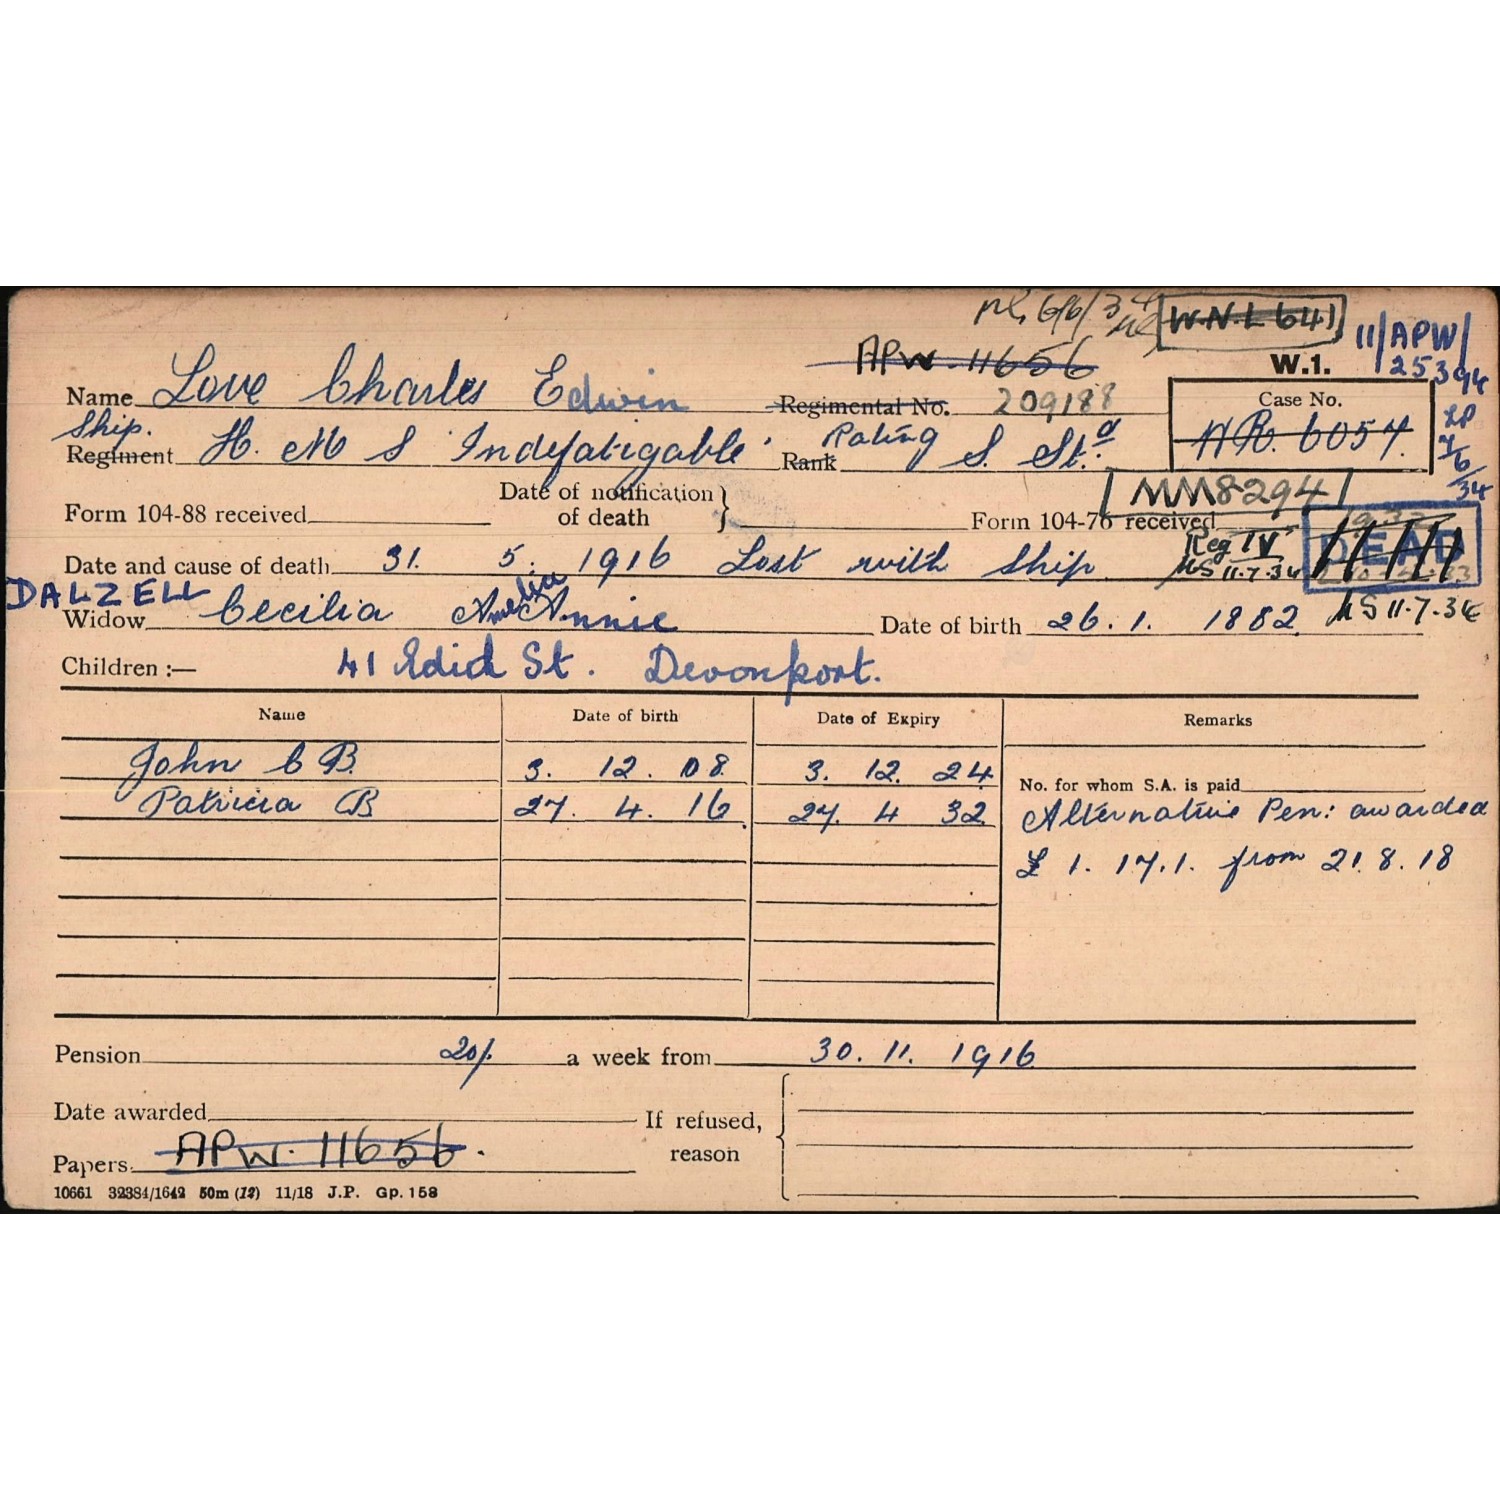 6/6/34 W.N.L 641 11/APW/
25394
APW. 11656 W.1.
Name Love Charles Edwin Regimental No. 209188 Case No.
Ship. Rating
Regiment H. M S Indefatigable. Rank S. Std. 6057. 7/6/34
Date of notification of death MM8294
Form 104-88 received Form 104-76 received
Reg IV DEAD
Date and cause of death 31. 5. 1916 Lost with Ship MS 11.7.34
DALZELL Amelia MS 11.7.34
Widow Cecilia Annie Date of birth 26. 1. 1882.
Children :— 41 St. Devonport.
Name Date of birth Date of Expiry Remarks
John C B. 3. 12. 08. 3. 12. 24
No. for whom S.A. is paid
Patricia B 27. 4. 16. 27. 4 32 Alternative Pen: awarded
£ 1. 17. 1. from 21. 8. 18
Pension 20/- a week from 30. 11. 1916
Date awarded If refused, reason
Papers APW. 11656.
10661 32384/1642 50m (12) 11/18 J.P. Gp. 158